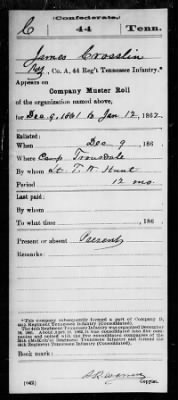 (Confederate.)
C 44 Tenn.
James Crosslin
Pvt, Co. A, 44 Reg't Tennessee Infantry.*
Appears on
Company Muster Roll
of the organization named above,
for Dec 9, 1861 to Jan 12, 1862.
Enlisted:
When Dec 9, 186
Where Camp Trousdale
By whom Lt. T. W. Hunt
Period 12 mo.
Last paid:
By whom
To what time , 186
Present or absent Present
Remarks:
*This company subsequently formed a part of Company
44th Regiment Tennessee Infantry (Consolidated).
Book mark:
(642)
Copyist.